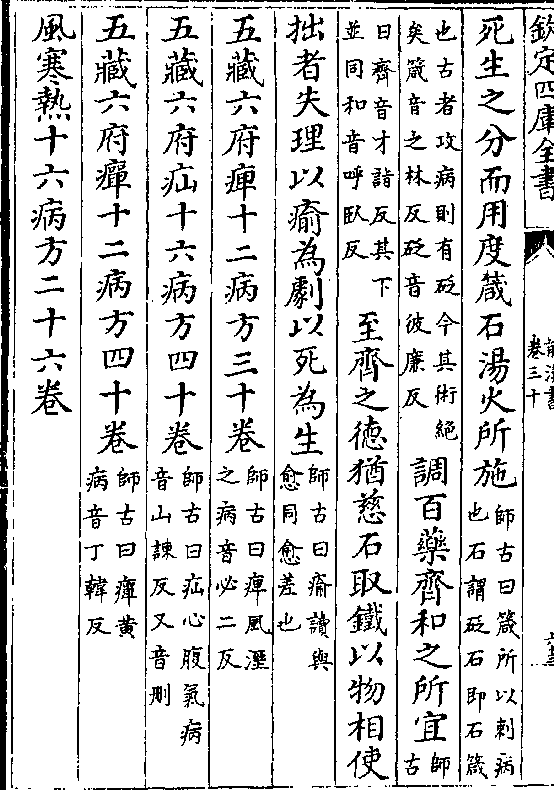 欽定四庫全書
前漢書
卷三十
死生之分而用度箴石湯火所施師古曰箴所以刺病
也石謂砭石即石箴
也古者攻病則有砭今其術絶
矣箴音之林反砭音彼廉反調百藥齊和之所宜師
古
曰齊音才詣反其下
並同和音呼臥反至齊之徳猶慈石取鐵以物相使
拙者失理以瘉為劇以死為生師古曰瘉讀與
愈同愈差也
五藏六府痺十二病方三十卷師古曰痺風溼
之病音必二反
五藏六府疝十六病方四十卷師古曰疝心腹氣病
音山諫反又音刪
五藏六府癉十二病方四十卷師古曰癉黄
病音丁韓反
風寒熱十六病方二十六卷